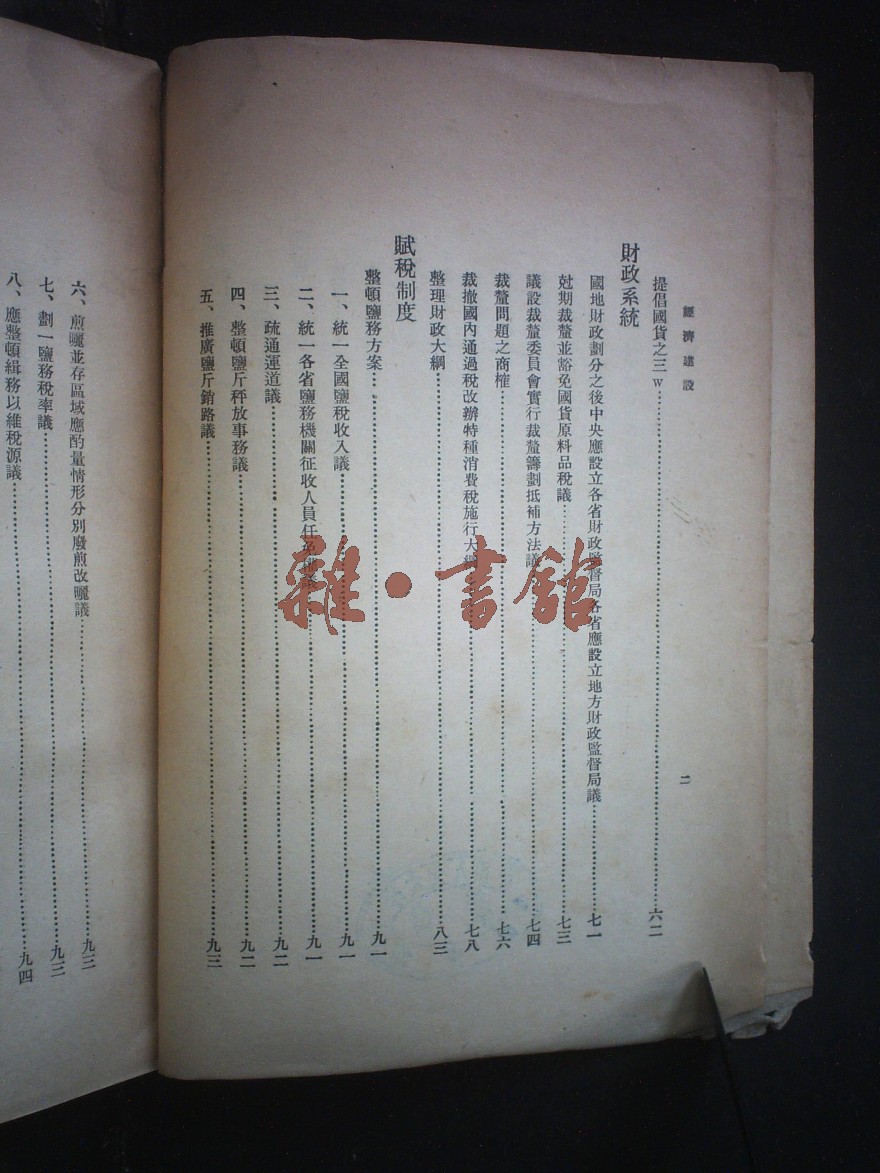 經濟建設
二
提倡國貨之三W……六二
財政系統
國地財政劃分之後中央應設立各省財政監督局各省應設立地方財政監督局議……七一
尅期裁釐並豁免國貨原料品稅議……七三
議設裁釐委員會實行裁釐籌劃抵補方法議……七四
裁釐問題之商榷……七六
裁撤國內通過稅改辦特種消費稅施行大綱……七八
整理財政大綱……八三
賦稅制度
整頓鹽務方案……九一
一、統一全國鹽稅收入議……九一
二、統一各省鹽務機關征收人員任……九一
三、疏通運道議……九二
四、整頓鹽斤秤放事務議……九二
五、推廣鹽斤銷路議……九三
六、煎曬並存區域應酌量情形分別廢煎改曬議……九三
七、劃一鹽務稅率議……九三
八、應整頓緝務以維稅源議……九四
雜·書館